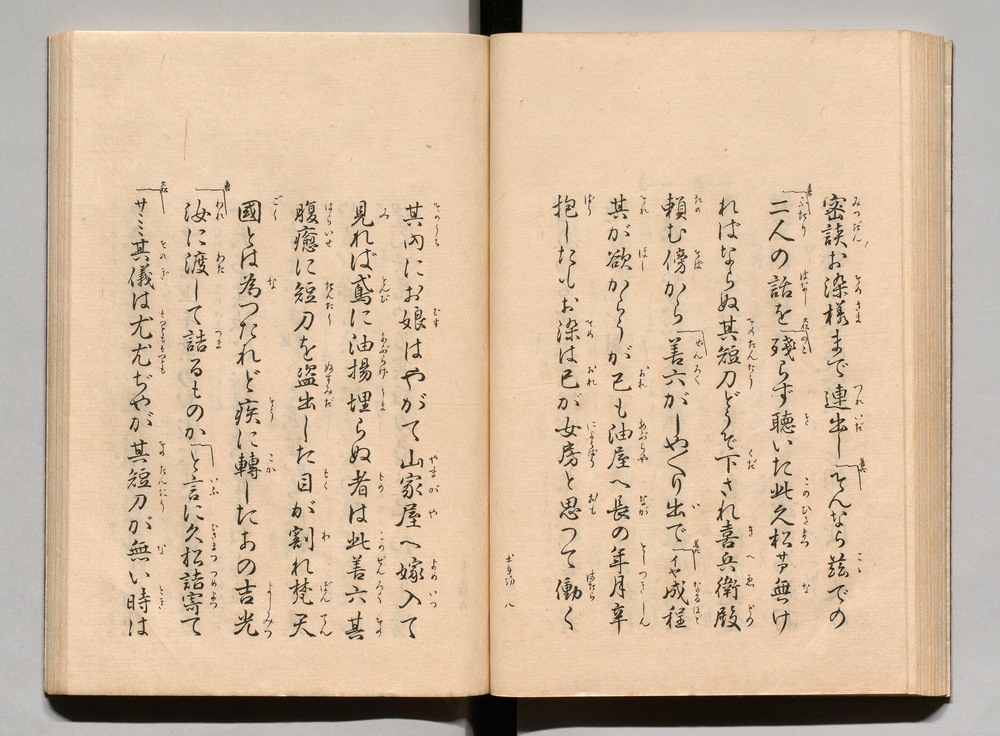 密談お染様まで連出し「そんなら茲での
二人の話を「殘らず聴いた此久松サア無け
ればならぬ其短刀どうぞ下され喜兵衛殿
頼む傍から「善六がしやべり出で「ヲヽ成程
其が欲からうが己も油屋へ長の年月辛
抱したもお染は己が女房と思つて働く
其内にお娘はやがて山家屋へ嫁入て
見れば鳶に油揚埋らぬ者は此善六其
腹癒に短刀を盗出した目が割れ梵天
國とは為つたれど疾に轉したあの吉光
汝に渡して詰るものか「と言に久松詰寄て
サミ其儀は尤尤ぢやが其短刀が無い時は
八